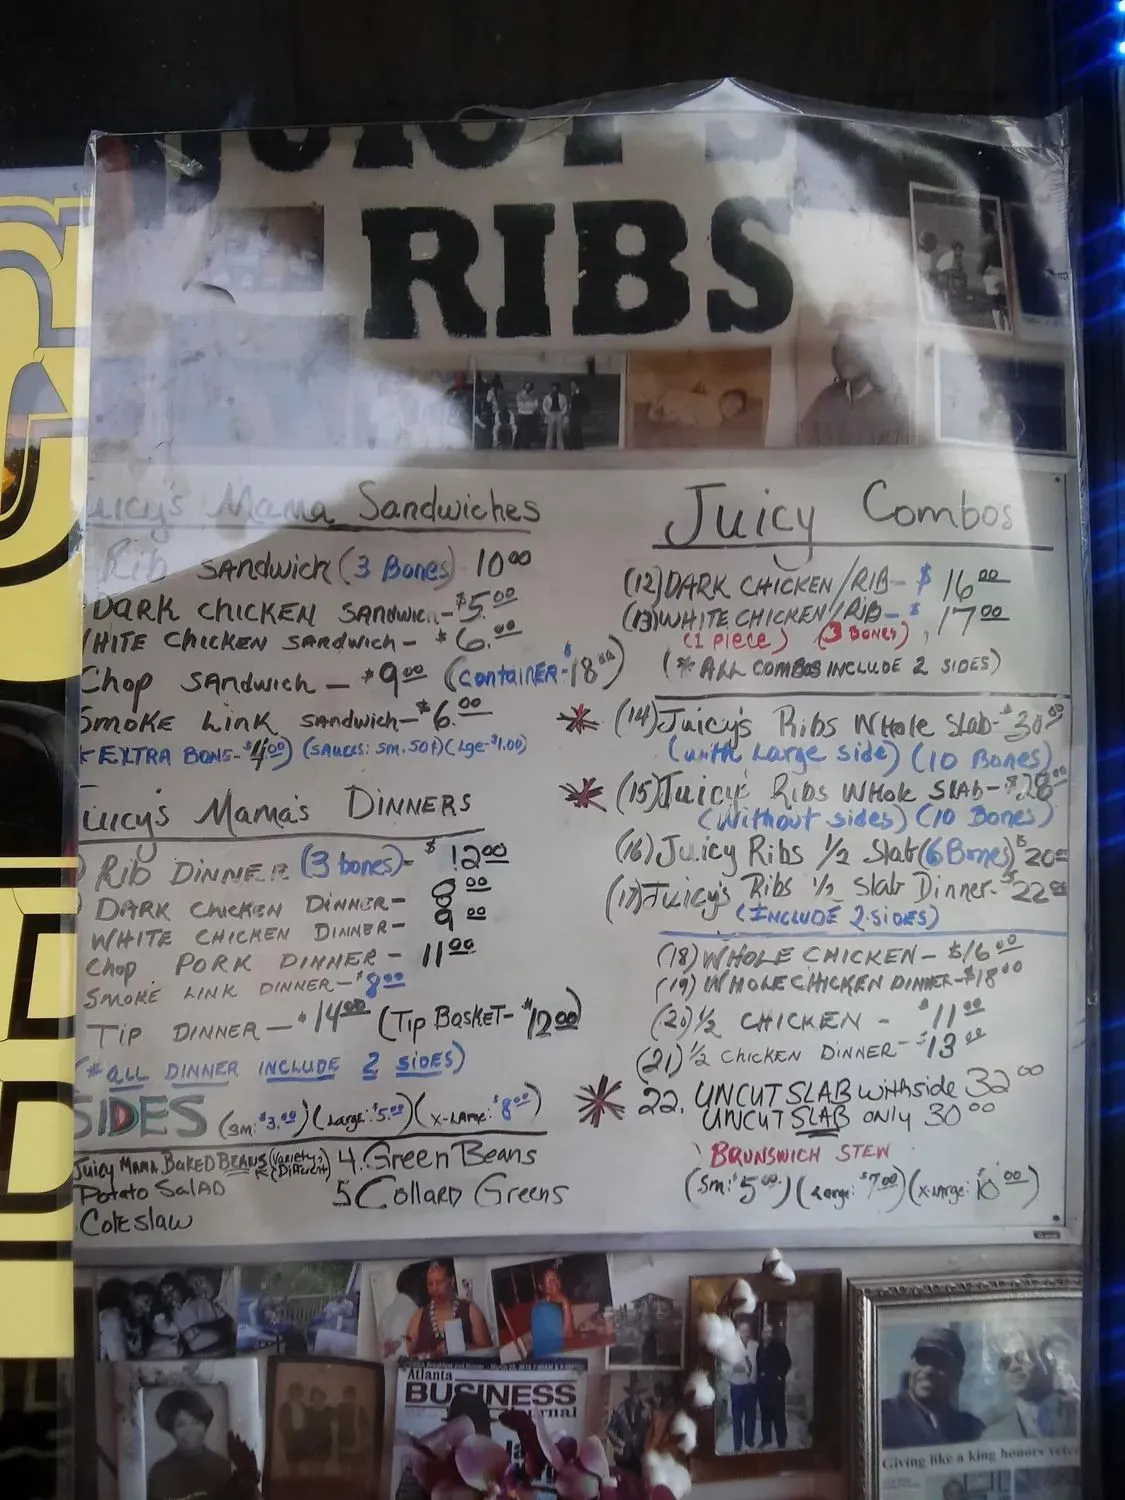 JUICY'S
RIBS
Juicy's Mama Sandwiches
Rib Sandwich (3 Bones) 10.00
DARK CHICKEN SANDWICH - $5.00
WHITE CHICKEN SANDWICH - $6.00
Chop SANDWICH - $9.00 (CONTAINER - $18.00)
SMOKE LINK SANDWICH - $6.00
* EXTRA BONE - $4.00) (SAUCES: SM. 50¢) (Lge - $1.00)
Juicy's Mama's DINNERS
Rib DINNER (3 bones) - $12.00
DARK CHICKEN DINNER - 8.00
WHITE CHICKEN DINNER - 9.00
Chop PORK DINNER - 11.00
SMOKE LINK DINNER - $8.00
TIP DINNER - $14.00 (TIP BASKET - $12.00)
(* ALL DINNER INCLUDE 2 SIDES)
SIDES (Sm: $3.00) (Large: $5.00) (X-LARGE: $8.00)
Juicy MAMA BAKED BEANS (Variety, Different)
Potato SALAD
Coleslaw
4. Green Beans
5 Collard Greens
Juicy Combos
(12) DARK CHICKEN/RIB - $16.00
(13) WHITE CHICKEN/RIB - $17.00
(1 PIECE) (3 BONES)
(* ALL COMBOS INCLUDE 2 SIDES)
(14) Juicy's Ribs Whole Slab - $30.00
(with Large side) (10 Bones)
(15) Juicy' Ribs Whole SLAB - $28.00
(Without sides) (10 Bones)
(16) Juicy Ribs 1/2 Slab (6 Bones) $20.00
(17) Juicy's Ribs 1/2 Slab Dinner - $22.00
(INCLUDE 2 SIDES)
(18) WHOLE CHICKEN - $16.00
(19) WHOLE CHICKEN DINNER - $18.00
(20) 1/2 CHICKEN - $11.00
(21) 1/2 CHICKEN DINNER - $13.00
22. UNCUT SLAB with side 32.00
UNCUT SLAB only 30.00
BRUNSWICH STEW
(Sm: $5.00) (Large: $7.00) (X-Large: 10.00)
Atlanta
BUSINESS
Giving like a king honors